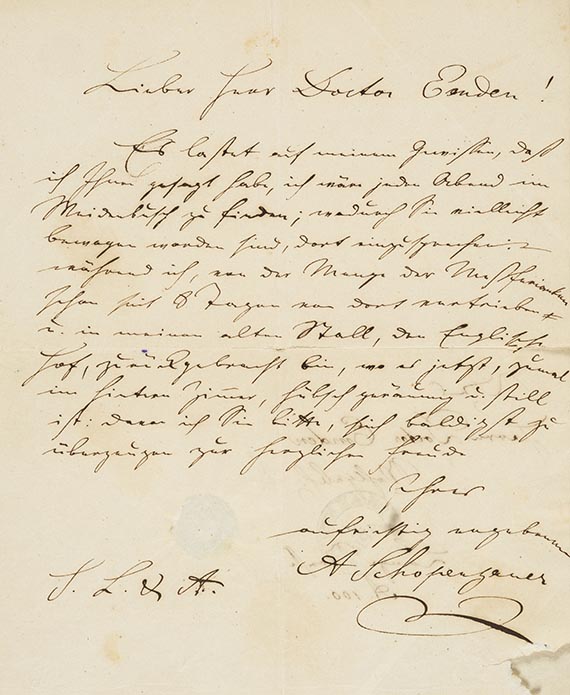 Lieber Herr Doctor Emden!
Es lastet auf meinem Gewissen, daß
ich Ihnen gesagt habe, ich wäre jeden Abend im
Weidenbusch zu finden; wodurch Sie vielleicht
bewogen worden sind, dort einzusprechen;
während ich, von der Menge der Meßfremden
schon seit 8 Tagen von dort vertrieben
u. in meinen alten Stall, den Englischen
Hof, zurückgebracht bin, wo es jetzt, zumal
im hintern Zimmer, hübsch geräumig u. still
ist: davon ich Sie bitte, sich baldigst zu
überzeugen zur herzlichen Freude
Ihres
aufrichtig ergebenen
A Schopenhauer
S. L. & A.